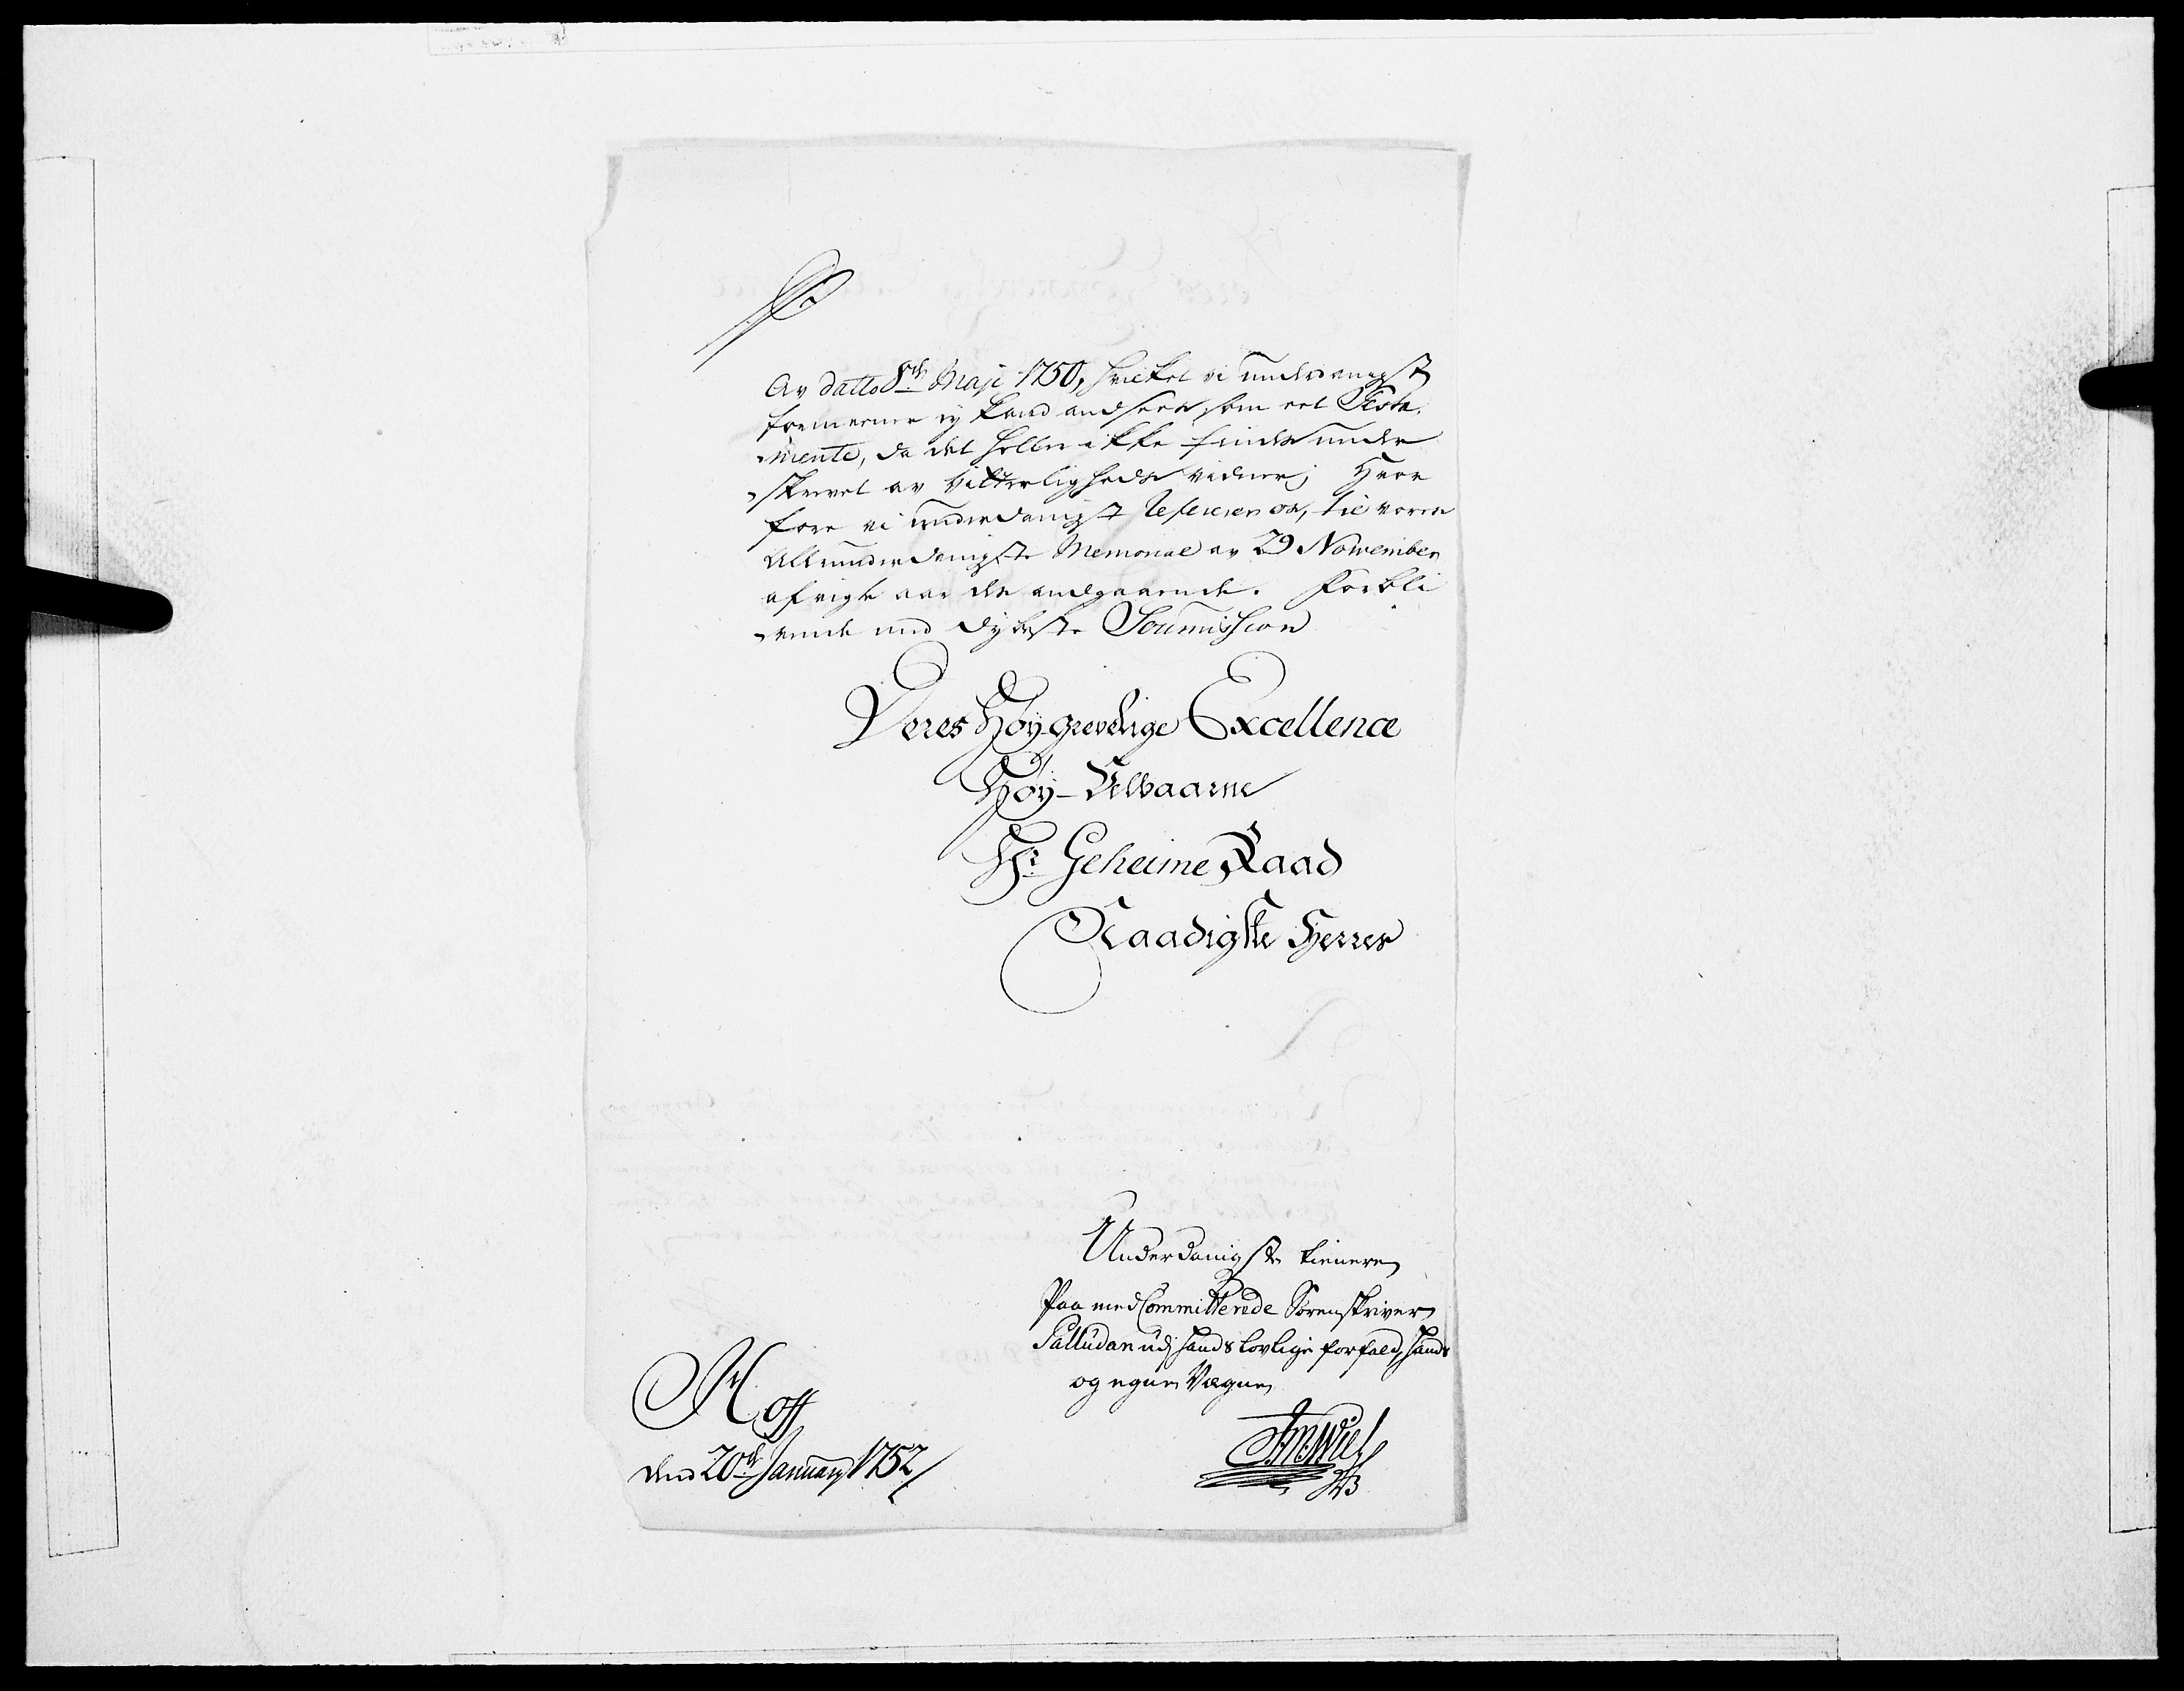 Av datto 8de Maji 1750, hvilket vi underdanigst
formerner ey kand andsees som eet Testa,
mente, da det heller ikke findes under
skrevet av Vitterligheds vidner; Hvor
fore vi underdanigst Refererer os, til vores
Allerunderdanigste Memorial av 29 November
afvigte aar des andgaaende. Forbli
vende med dybeste Soumission
Deres Høy-grevelige Excellence
Høy-Velbaarne
Hr Geheime Raad
Naadigste Herres
Underdanigste tienere
Paa med Committerede Sorenskriver
Palludan udj hands lovlige forfald, hands
og egne Vegne
Hoff
dend 20de January 1752